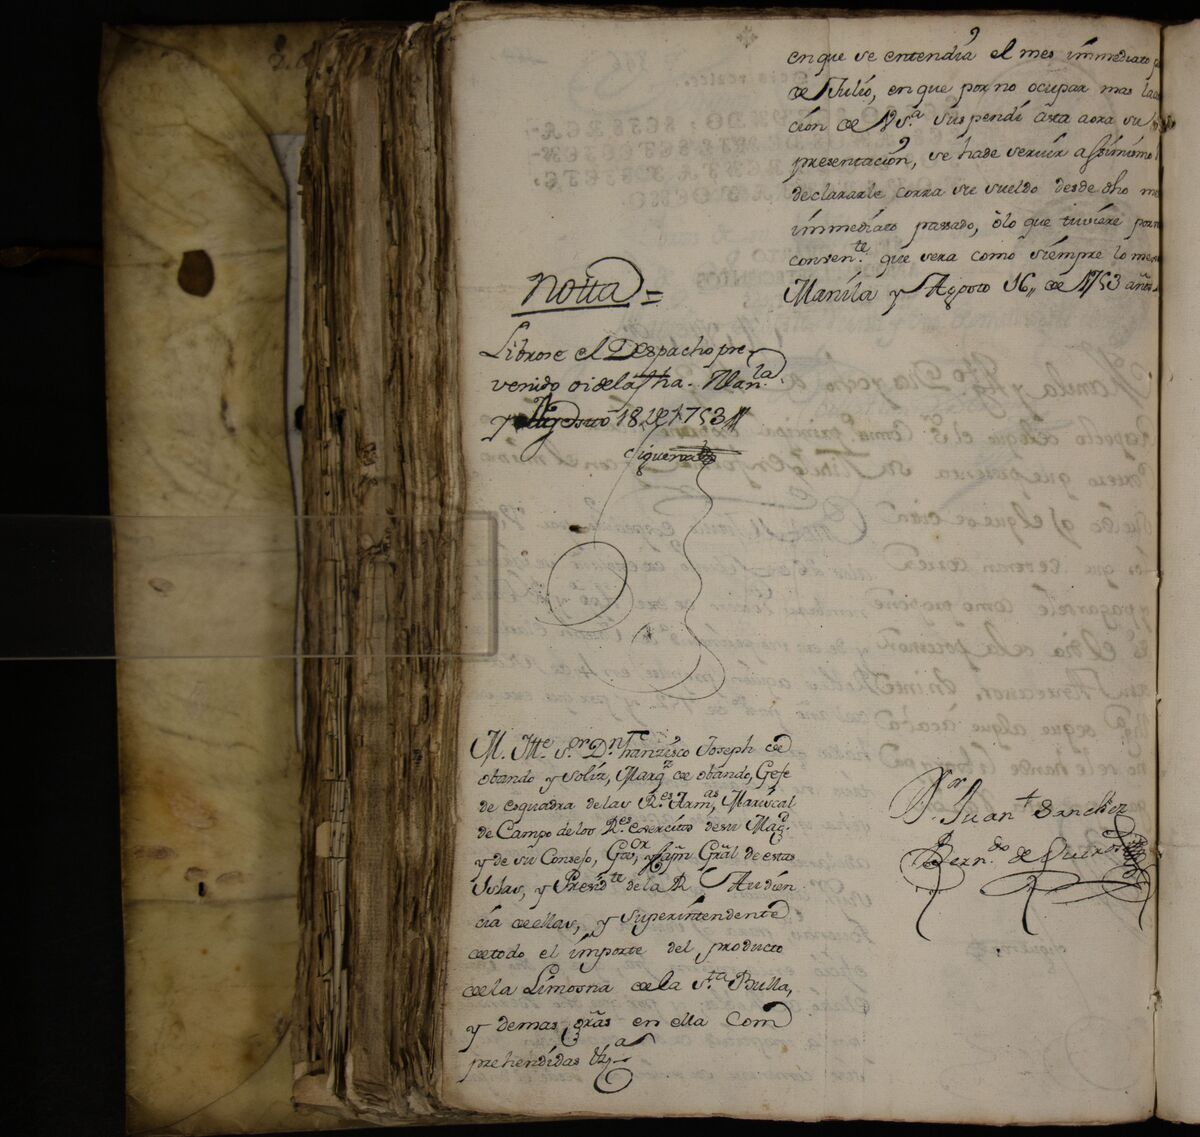 en que se entendia el mes immediato
de Julio, en que por no ocupar mas la
cion de V Sª suspendi asta aora su
presentacion, se hade servir assimismo
declararle corra su sueldo desde dho me
immediato passado, ò lo que tuviere por
conven.te que sera como siempre lo me
Manila y Agosto 16,, de 1753 años
Notta =
Librose el Despacho pre-
venido oi dela fha. Man.la
y Agosto 18 de 1753
Siguenza
M. Itt.e S.or D.n Franzisco Joseph de
obando y Solis, Marq.z de obando, Gefe
de esquadra delas R.es Arm.as, Mariscal
de Campo de los R.es exercitos de su Mag.d
y de su Consejo, Gov.or, y Cap.n Gral de estas
Islas, y Presid.te de la R.l Audien
cia de ellas, y Superintendente
de todo el importe del producto
de la Limosna de la S.ta Bulla,
y demas gras en ella Com
prehendidas &.a
S.or
Juan Sanchez
Bern.do de Quiros